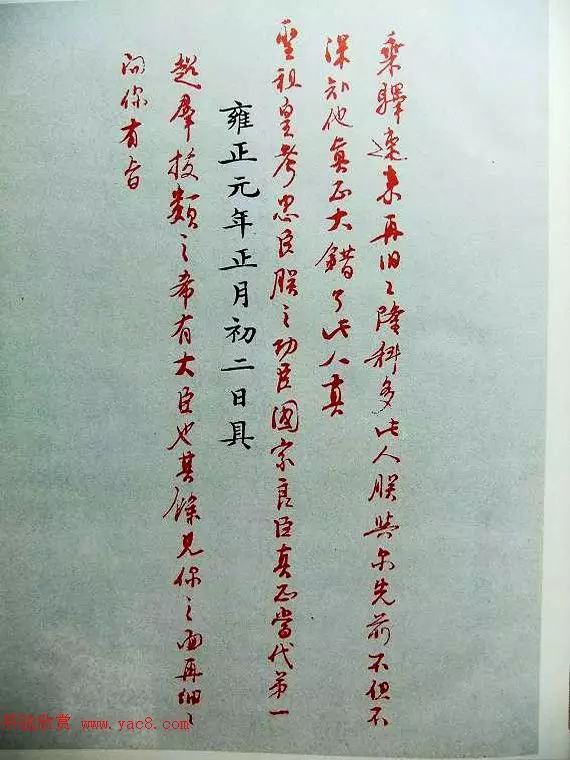 乘驛速来再舅舅隆科多此人朕與尔先前不但不
深知他真正大錯了此人真
聖祖皇考忠臣朕之功臣國家良臣真正當代第一
雍正元年正月初二日具
超群拔類之希有大臣也其餘見你之面再細細
問你有旨
欣赏 www.yac8.com